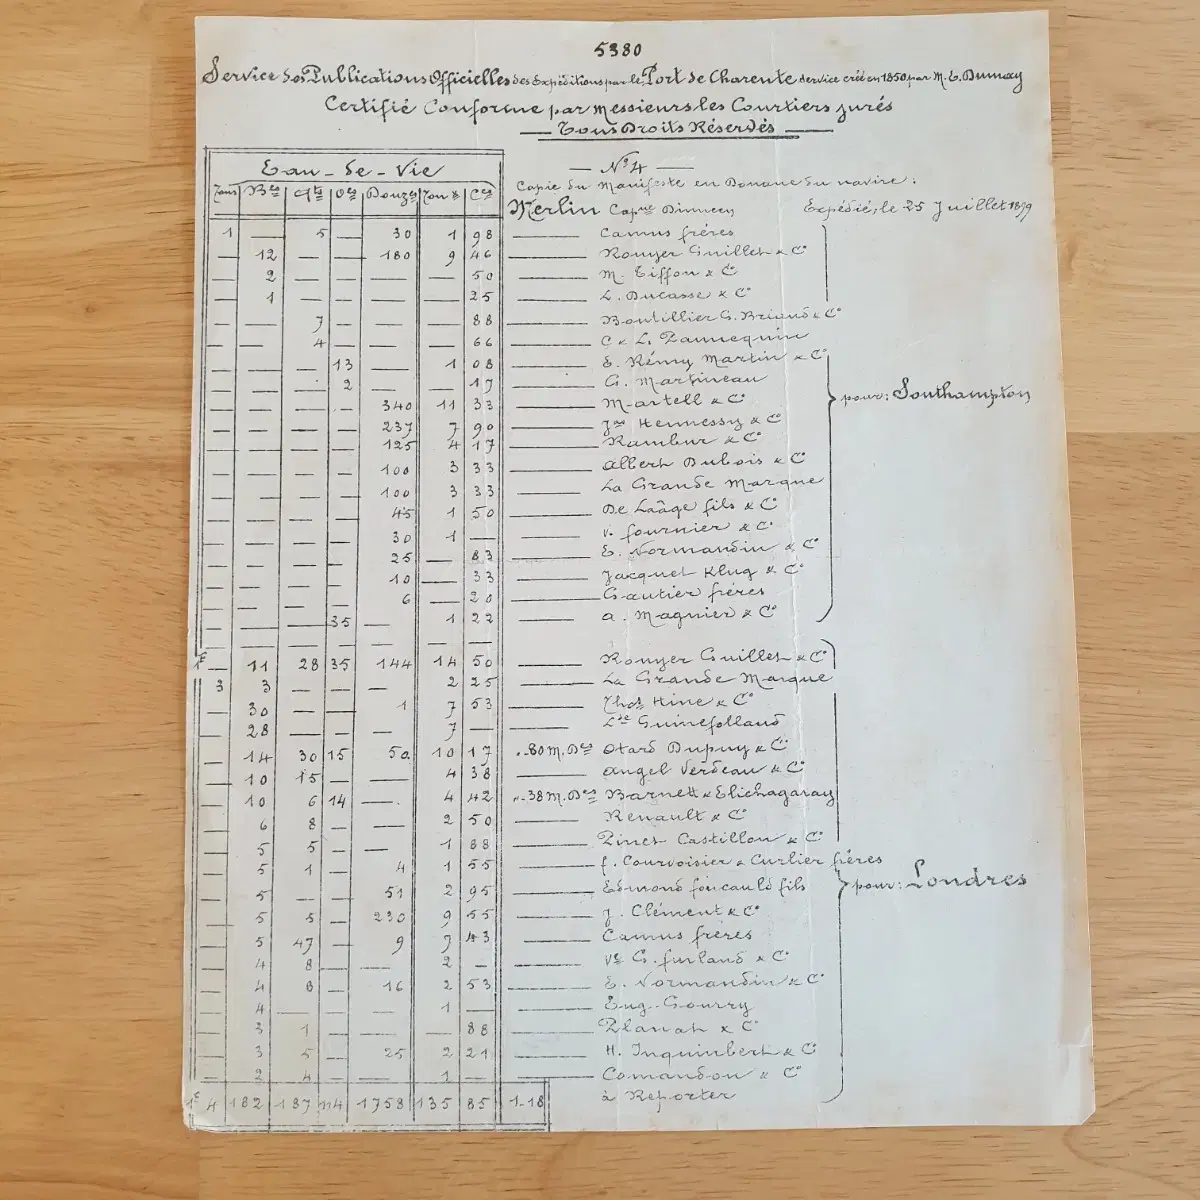 5380
Service des Publications Officielles des Expéditions par le Port de Charente service créé en 1850 par M. E. Dumay
Certifié Conforme par Messieurs les Courtiers jurés
— Tous Droits Réservés —
Eau-de-Vie
Tons Bes Qts Oes Douzes Tonx Ces
— No 4 —
Copie du Manifeste en Douane du navire :
Merlin Capne Expédié, le 25 Juillet 1899
1 — 5 — 30 1 98 — Camus frères
— 12 — — 180 9 46 — Rouyer Guillet & Co
— 2 — — — — 50 — M. Tiffon & Co
— 1 — — — — 25 — L. Ducasse & Co
— — 7 — — — 88 — Boutillier G. Briand & Co
— — 4 — — — 66 — C & L.
— — — 13 — 1 08 — E. Rémy Martin & Co
— — — 2 — — 17 — G. Martineau
— — — — 340 11 33 — Martell & Co
pour : Southampton
— — — — 237 7 90 — Jas Hennessy & Co
— — — — 125 4 17 — Rambur & Co
— — — — 100 3 33 — Albert Dubois & Co
— — — — 100 3 33 — La Grande Marque
— — — — 45 1 50 — De Laâge fils & Co
— — — — 30 1 — — V. Fournier & Co
— — — — 25 — 83 — E. Normandin & Co
— — — — 10 — 33 — Jacquet Klug & Co
— — — — 6 — 20 — Gautier frères
— — — 35 — 1 22 — A. Magnier & Co
1F — 11 28 35 144 14 50 — Rouyer Guillet & Co
3 3 — — — 2 25 — La Grande Marque
— 30 — — 1 7 53 — Thos Hine & Co
— 28 — — — 7 — — Lde Guinefollaud
— 14 30 15 50 10 17 „ 80 m. Des Otard Dupuy & Co
— 10 15 — — 4 38 — Angel Verdeau & Co
— 10 6 14 — 4 42 „ 38 m. Des Barnett & Elichagaray
— 6 8 — — 2 50 — Renault & Co
— 5 5 — — 1 88 — Pinet Castillon & Co
— 5 1 — 4 1 55 — F. Courvoisier & Curlier frères
pour : Londres
— 5 — — 51 2 95 — Edmond Foucauld fils
— 5 5 — 230 9 55 — J. Clément & Co
— 5 47 — 9 7 43 — Camus frères
— 4 8 — — 2 — — Ve G. Furlaud & Co
— 4 8 — 16 2 53 — E. Normandin & Co
— 4 — — — 1 — — Eug. Gourry
— 3 1 — — — 88 — Planat & Co
— 3 5 — 25 2 21 — H. Inquimbert & Co
— 2 4 — — 1 — — Comandon & Co
1F 4 182 187 114 1758 135 85 1-18 à Reporter